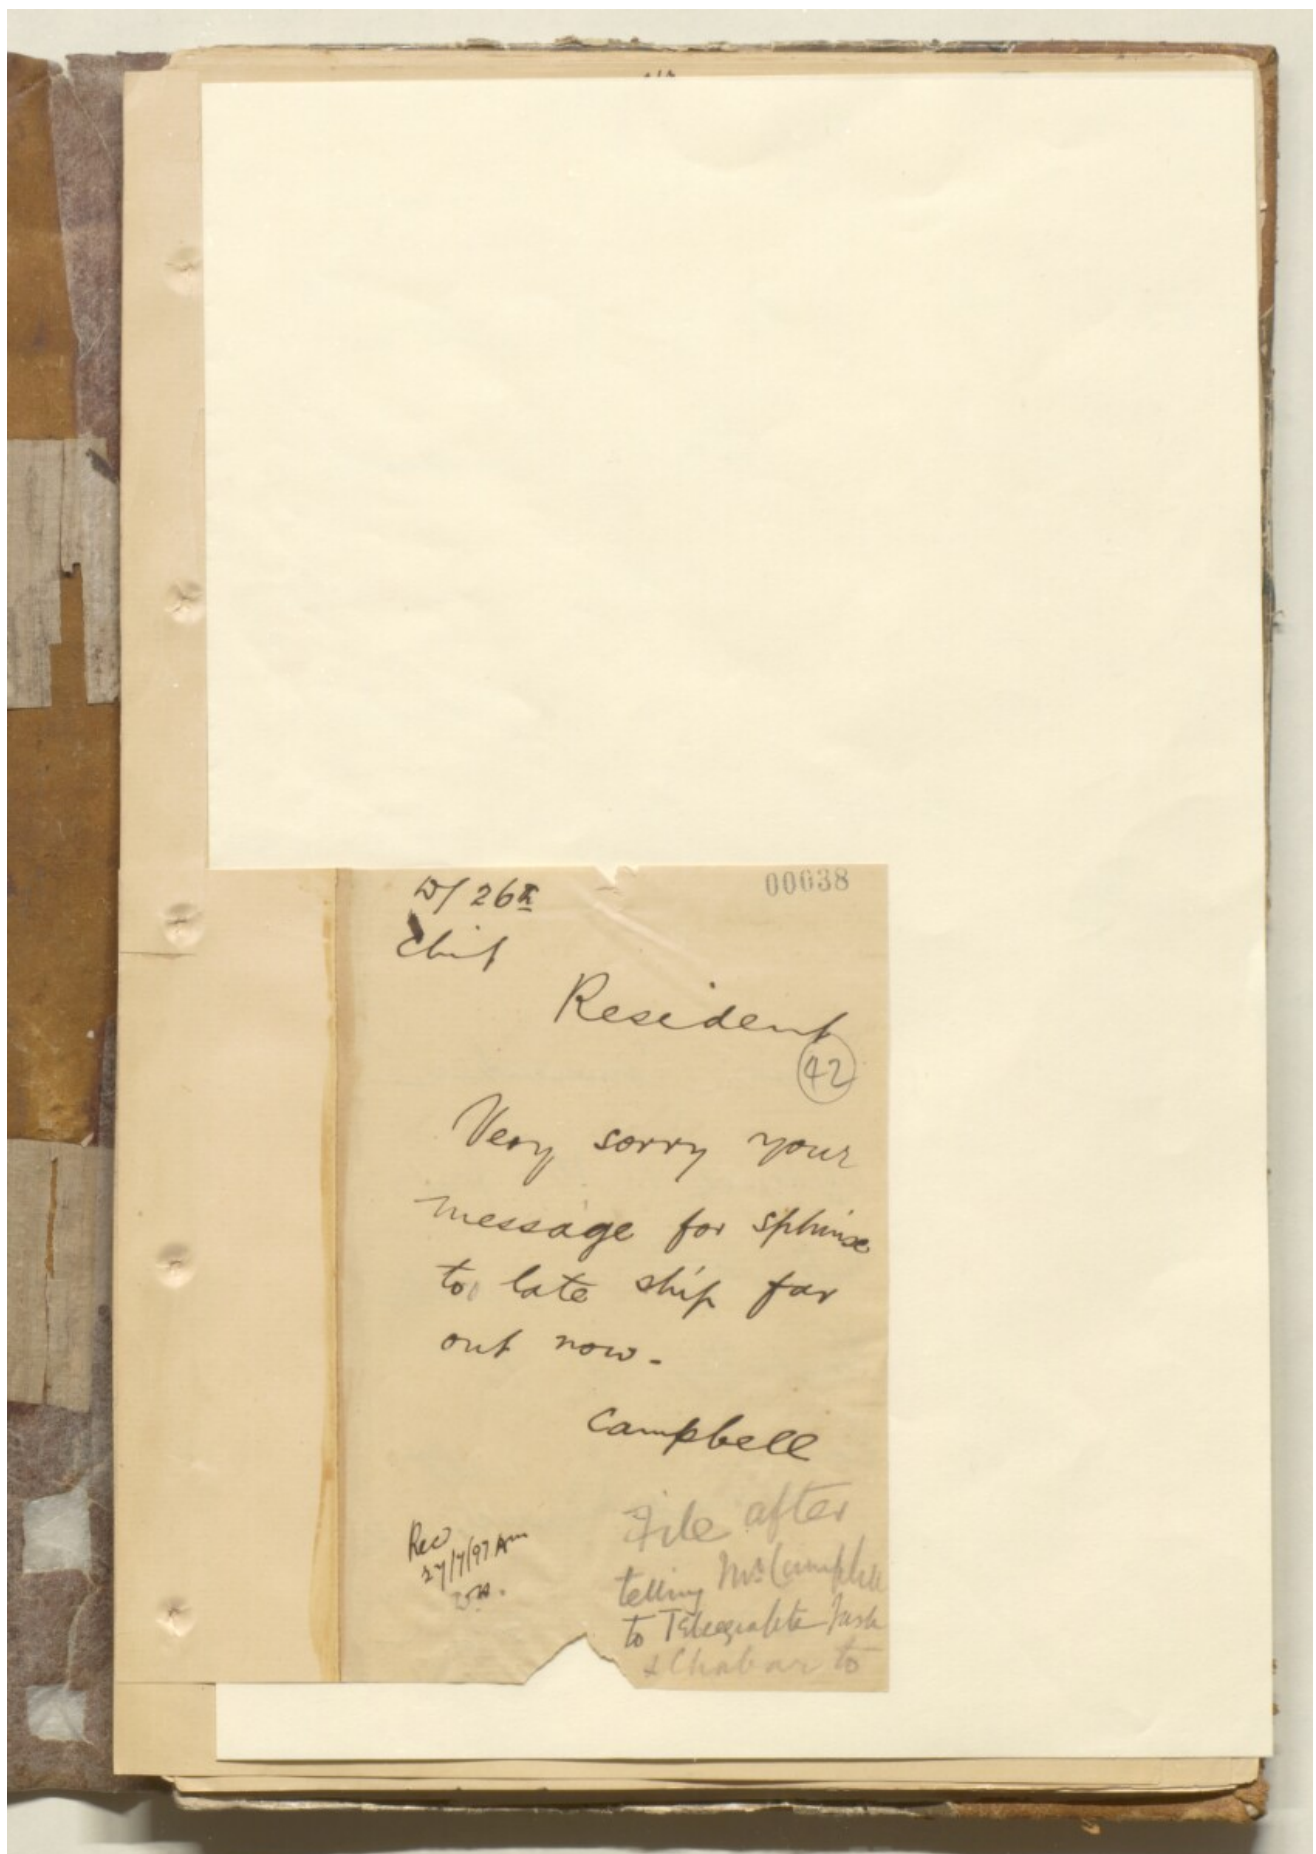 D/ 26th
00038
Chit
Resident
42
Very sorry your
message for Sphinx
too late ship far
out now.
Campbell
File after
telling Mr Campbell
to Telegraph to Jask
& Chabar to
Rec
27/7/97 Am